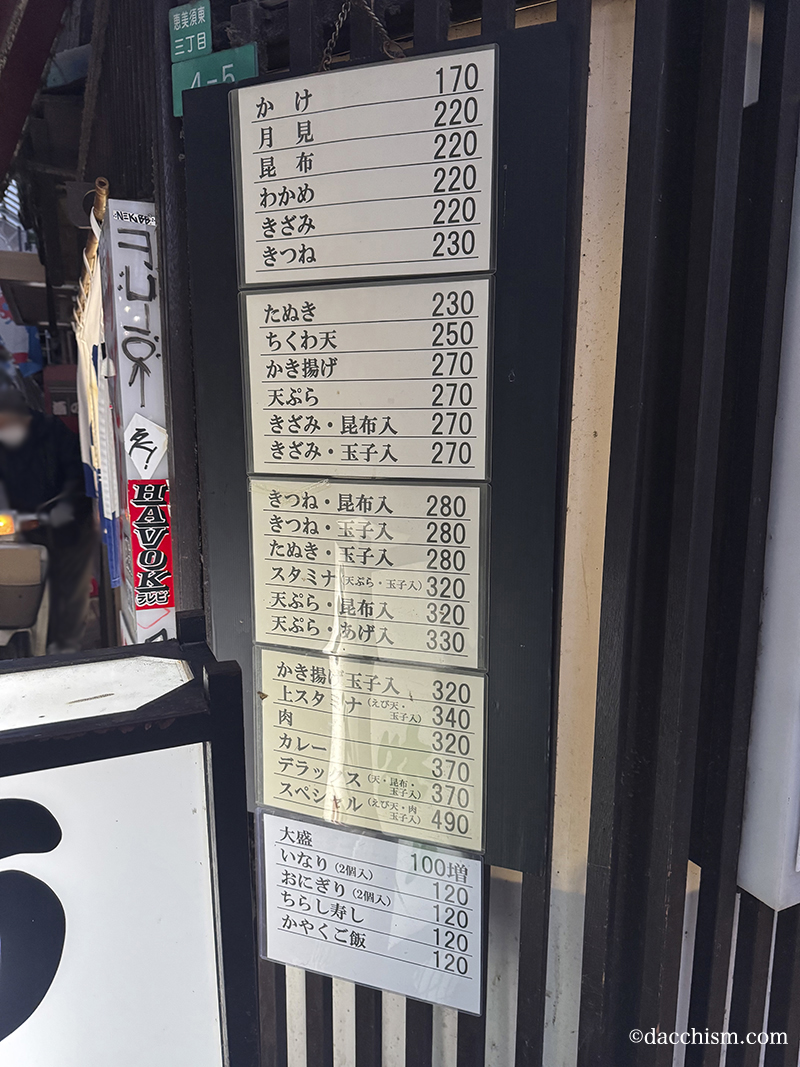 恵美須東
三丁目
4-5
かけ 170
月見 220
昆布 220
わかめ 220
きざみ 220
きつね 230
たぬき 230
ちくわ天 250
かき揚げ 270
天ぷら 270
きざみ・昆布入 270
きざみ・玉子入 270
きつね・昆布入 280
きつね・玉子入 280
たぬき・玉子入 280
スタミナ(天ぷら・玉子入) 320
天ぷら・昆布入 320
天ぷら・あげ入 330
かき揚げ玉子入 320
上スタミナ(えび天・玉子入) 340
肉 320
カレー 370
デラックス(天・昆布・玉子入) 370
スペシャル(えび天・肉玉子入) 490
大盛 100増
いなり(2個入) 120
おにぎり(2個入) 120
ちらし寿し 120
かやくご飯 120
HAVOK
テレビ
©dacchism.com